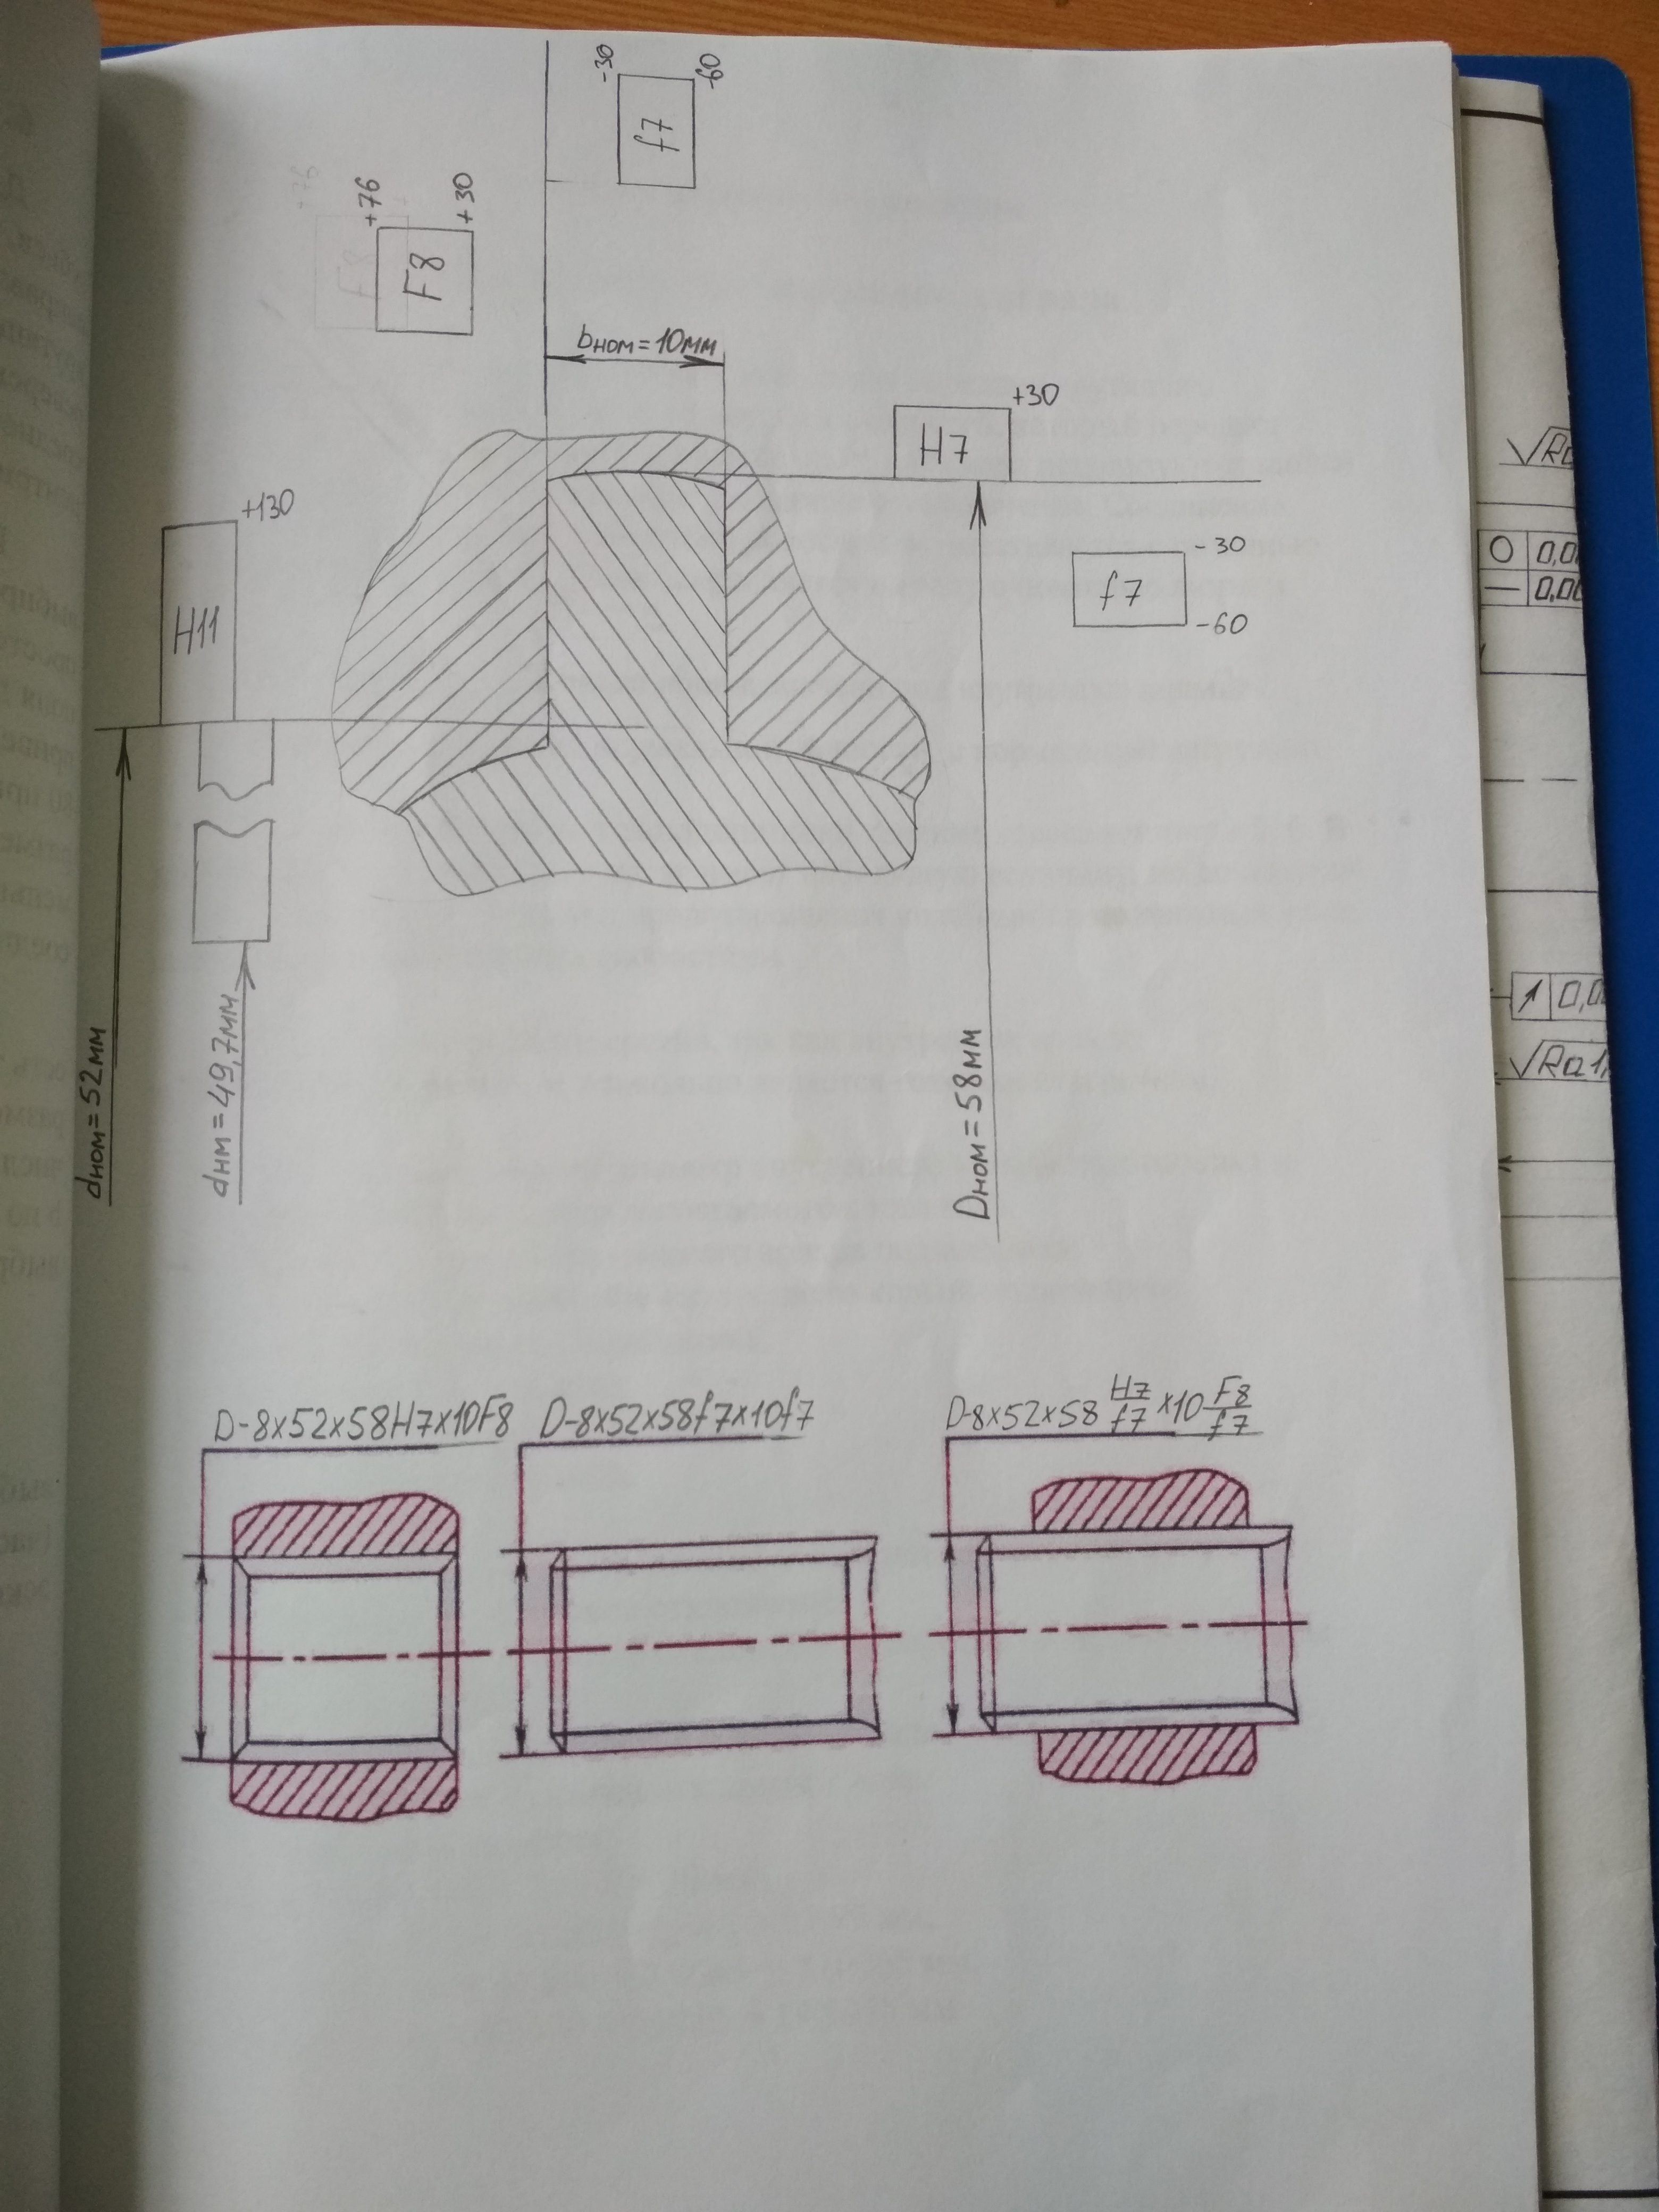 -30
-60
f7
+76
+30
F8
bном=10мм
+30
H7
+130
H11
-30
f7
-60
dном=52мм
dнм=49,7мм
Dном=58мм
D-8x52x58H7x10F8
D-8x52x58f7x10f7
D-8x52x58 H7/f7 x10 F8/f7
√Ra 1,
0,0
0,00
0,0